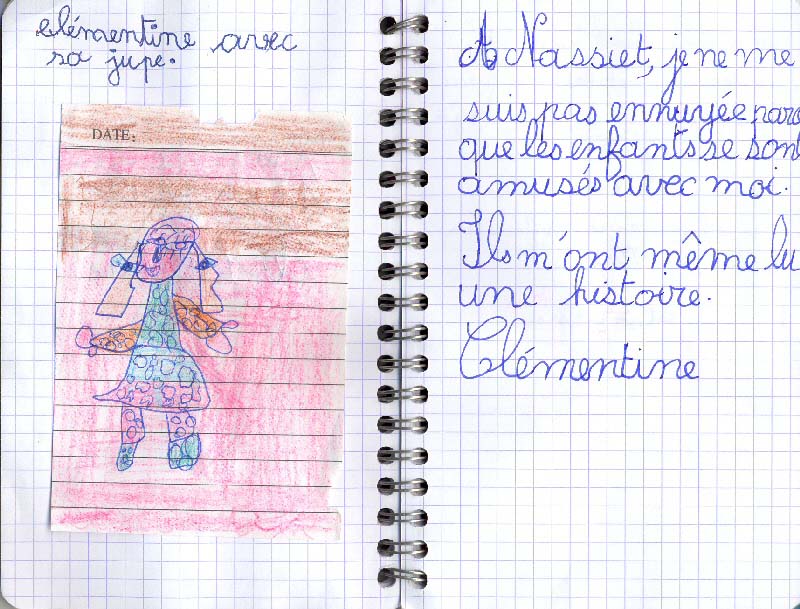 clémentine avec
sa jupe.
DATE:
A Nassiet, je ne me
suis pas ennuyée parc
que les enfants se sont
amusés avec moi.
Ils m'ont même lu
une histoire.
Clémentine